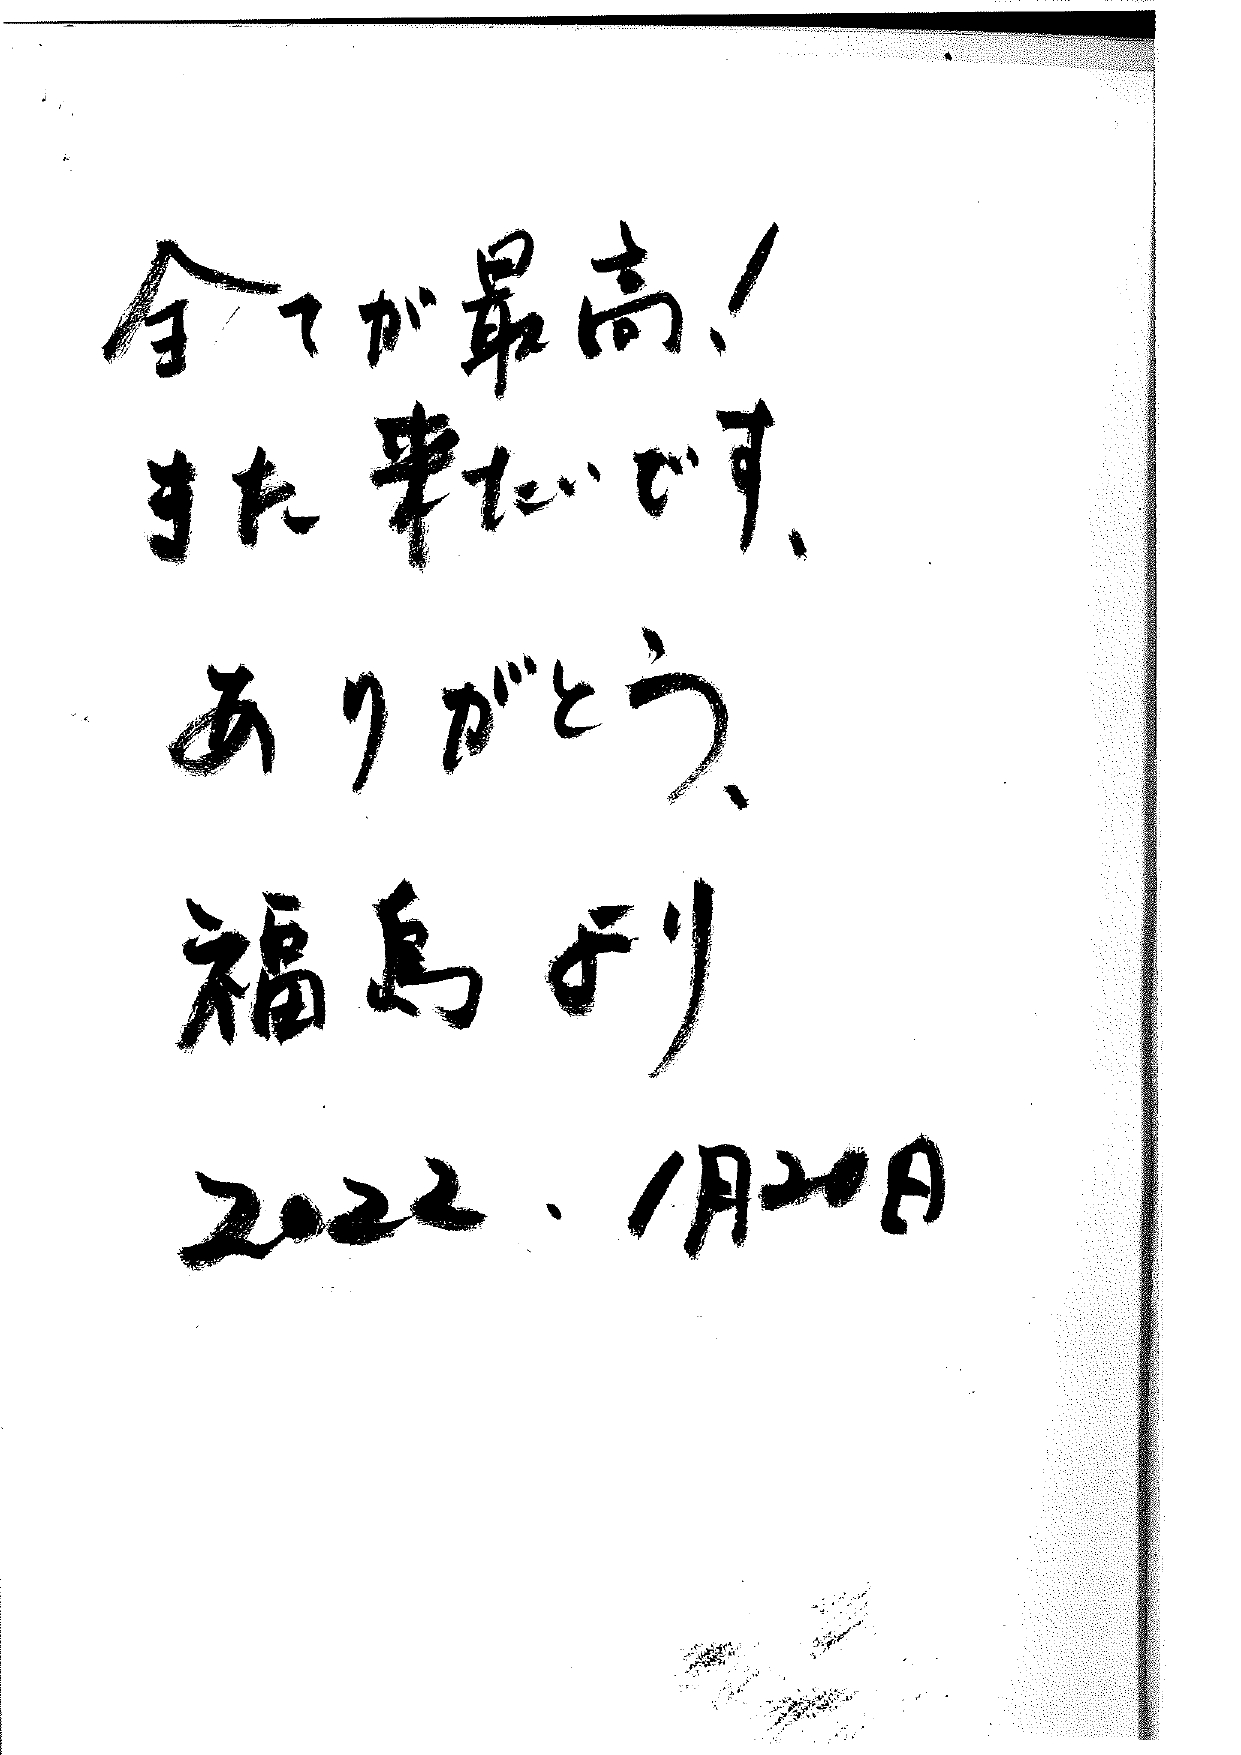 全てが最高!
また来たいです、
ありがとう、
福島より
2022、1月20日